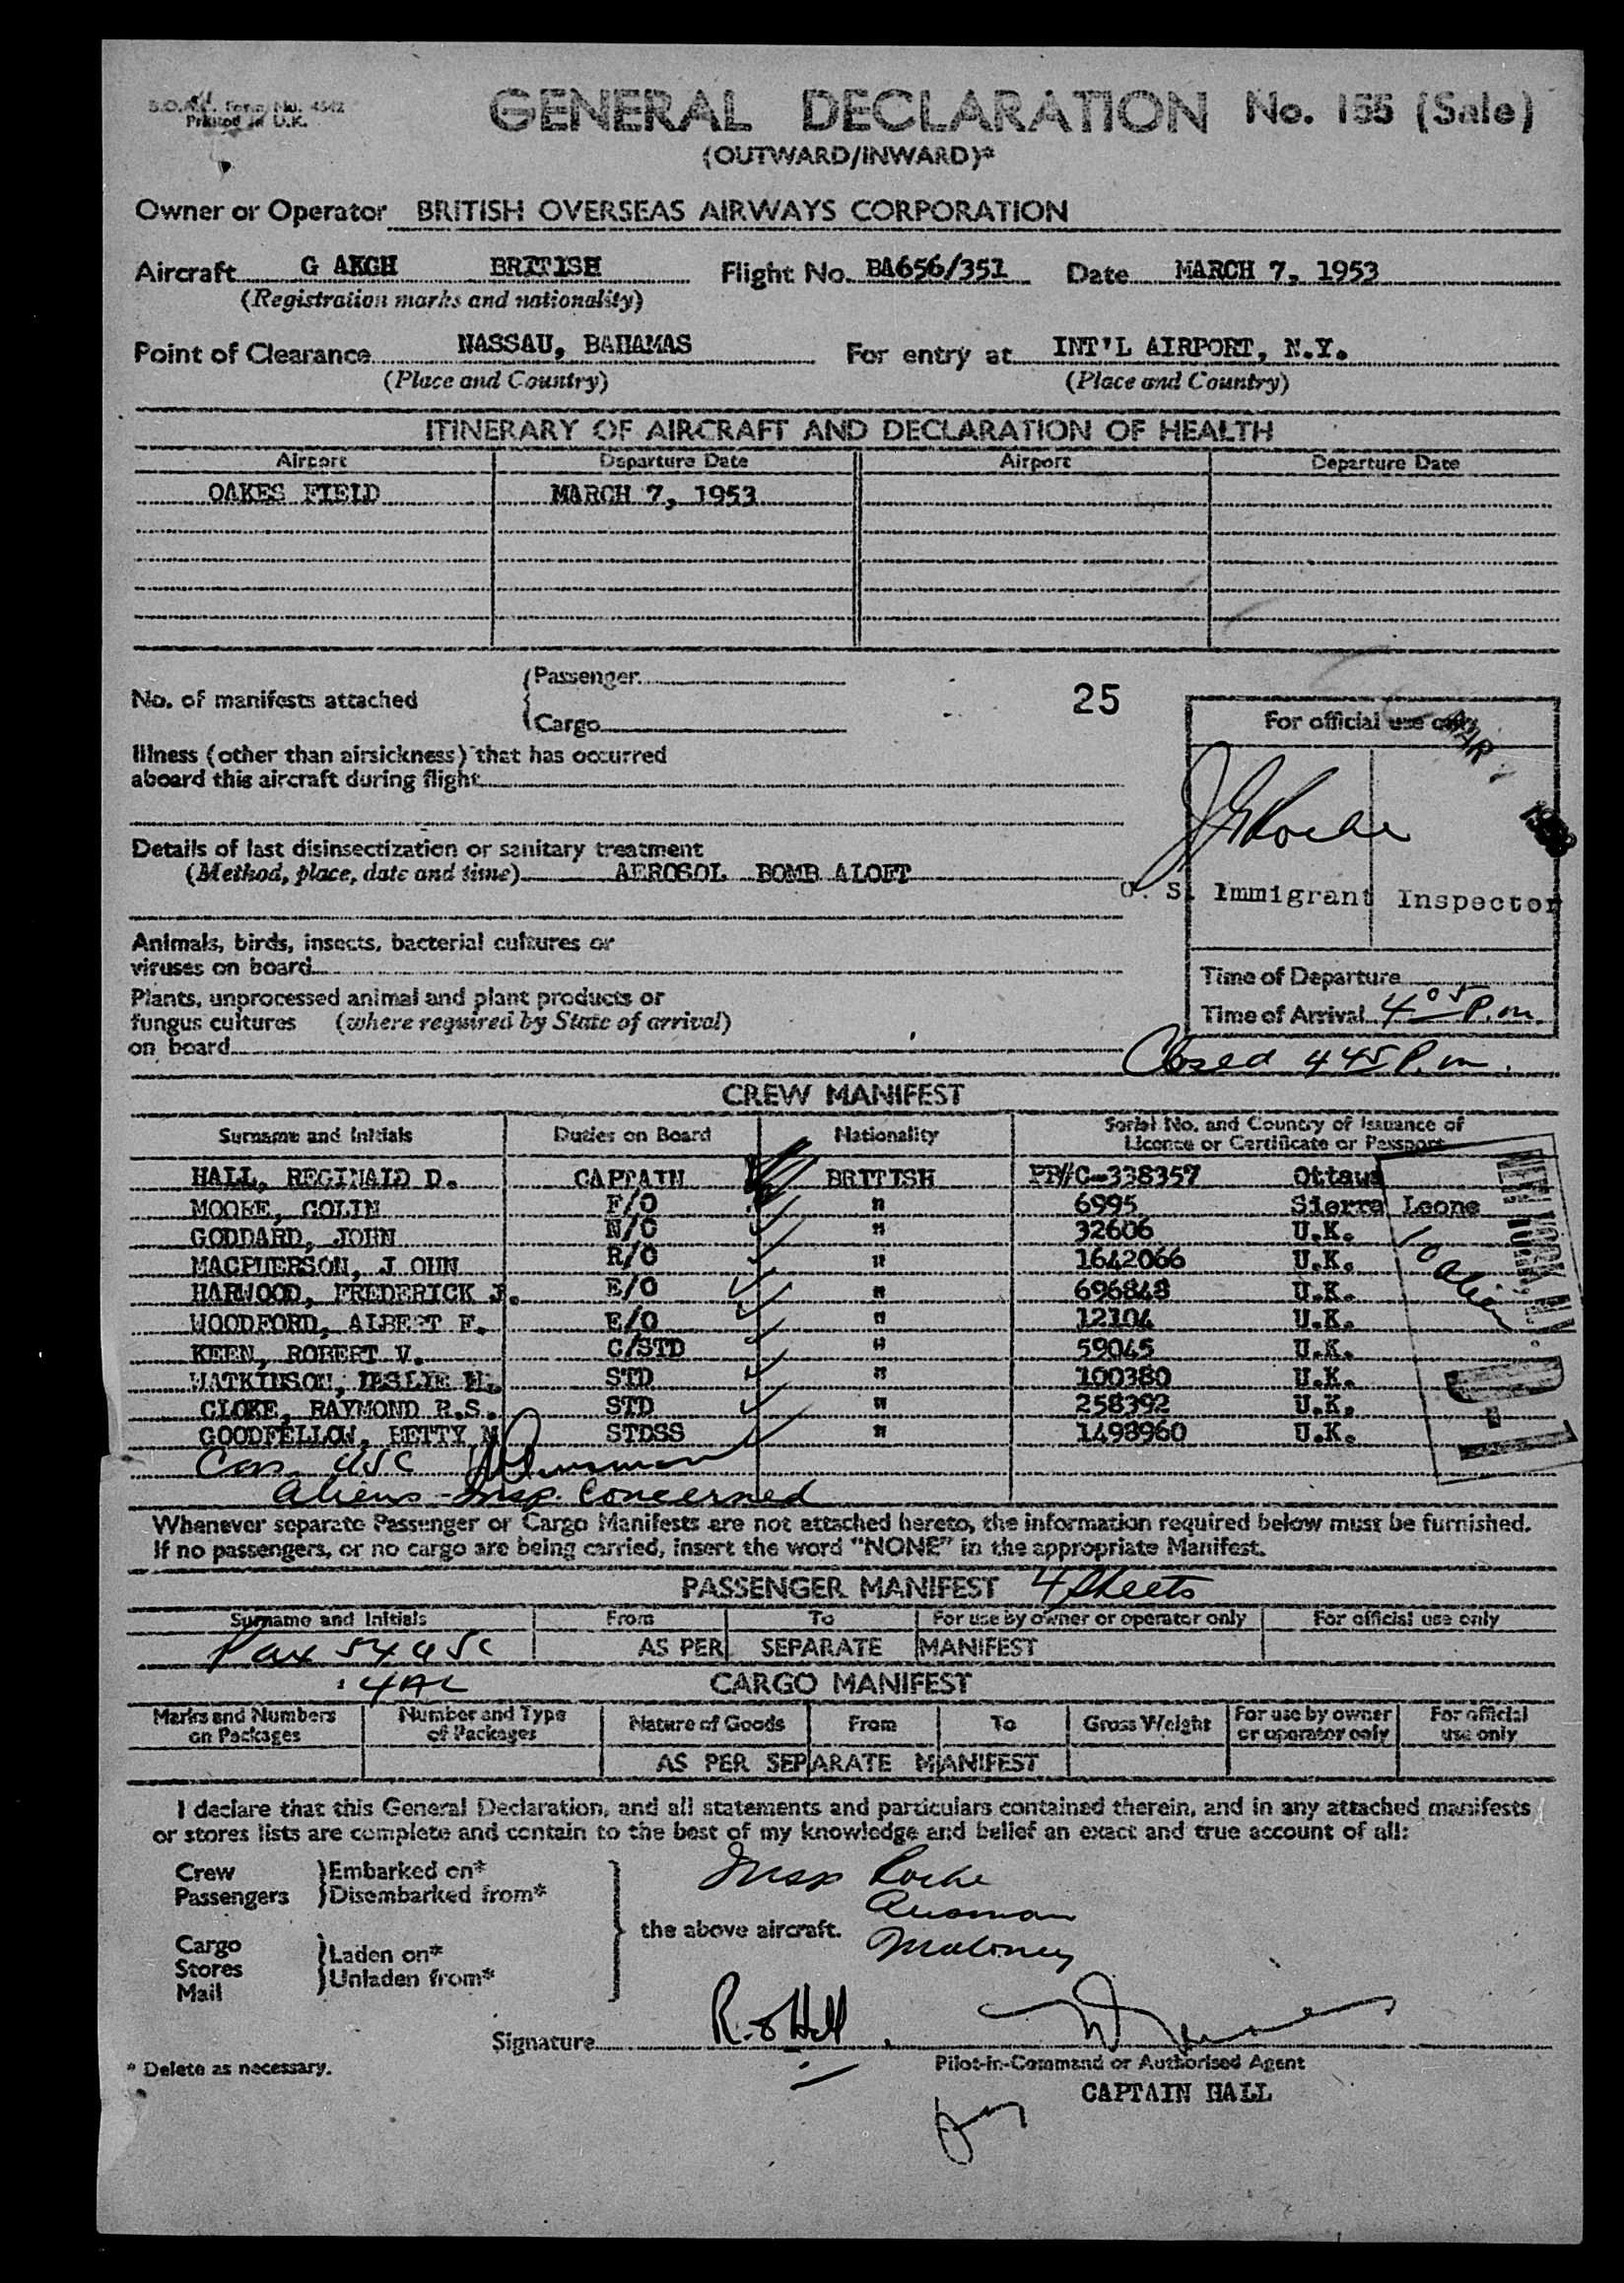 B.O.A.C. Form No. 4542
Printed in U.K.
GENERAL DECLARATION No. 155 (Sale)
(OUTWARD/INWARD)*
Owner or Operator BRITISH OVERSEAS AIRWAYS CORPORATION
Aircraft G AKGH BRITISH Flight No. BA656/351 Date MARCH 7, 1953
(Registration marks and nationality)
Point of Clearance NASSAU, BAHAMAS For entry at INT'L AIRPORT, N.Y.
(Place and Country) (Place and Country)
ITINERARY OF AIRCRAFT AND DECLARATION OF HEALTH
Airport Departure Date Airport Departure Date
OAKES FIELD MARCH 7, 1953
No. of manifests attached
Passenger
Cargo
25
For official use only
MAR
Illness (other than airsickness) that has occurred
aboard this aircraft during flight
J Roche
Details of last disinsectization or sanitary treatment
(Method, place, date and time) AEROSOL BOMB ALOFT
U. S. Immigrant Inspector
Animals, birds, insects, bacterial cultures or
viruses on board
Plants, unprocessed animal and plant products or
fungus cultures (where required by State of arrival)
on board
Time of Departure
Time of Arrival 4 05 P.m.
Closed 4 45 P.m.
CREW MANIFEST
Surname and Initials Duties on Board Nationality Serial No. and Country of Issuance of
Licence or Certificate or Passport
HALL, REGINALD D. CAPTAIN BRITISH PP#C-338357 Ottawa
MOORE, COLIN F/O " 6995 Sierra Leone
GODDARD, JOHN N/O " 32606 U.K.
MACPHERSON, J OHN R/O " 1642066 U.K.
HARWOOD, FREDERICK J. E/O " 696848 U.K.
WOODFORD, ALBERT F. E/O " 12104 U.K.
KEEN, ROBERT V. C/STD " 59045 U.K.
WATKINSON, LESLIE H. STD " 100380 U.K.
CLOKE, RAYMOND R.S. STD " 258392 U.K.
GOODFELLOW, BETTY M STDSS " 1498960 U.K.
10 Alien
NEW YORK, N.Y.
USC
Aliens - Insp. Concerned
Whenever separate Passenger or Cargo Manifests are not attached hereto, the information required below must be furnished.
If no passengers, or no cargo are being carried, insert the word "NONE" in the appropriate Manifest.
PASSENGER MANIFEST 4 Sheets
Surname and Initials From To For use by owner or operator only For official use only
Pax 54 USC AS PER SEPARATE MANIFEST
4 AL
CARGO MANIFEST
Marks and Numbers on Packages Number and Type of Packages Nature of Goods From To Gross Weight For use by owner or operator only For official use only
AS PER SEPARATE MANIFEST
I declare that this General Declaration, and all statements and particulars contained therein, and in any attached manifests
or stores lists are complete and contain to the best of my knowledge and belief an exact and true account of all:
Crew
Passengers
Embarked on*
Disembarked from*
Insp Roche
Maloney
the above aircraft.
Cargo
Stores
Mail
Laden on*
Unladen from*
Signature R. D Hall
* Delete as necessary.
Pilot-in-Command or Authorised Agent
CAPTAIN HALL